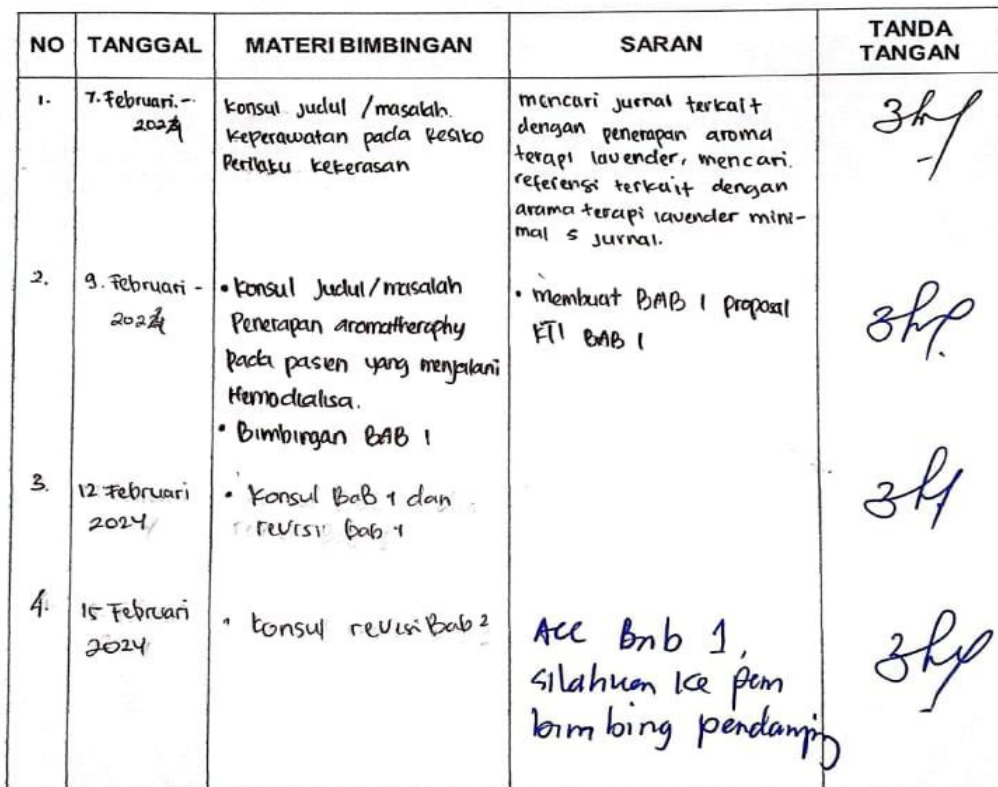 NO TANGGAL MATERI BIMBINGAN SARAN TANDA TANGAN
1.
7. Februari.-
2024
konsul judul /masalah.
keperawatan pada Resiko
Perilaku kekerasan
mencari jurnal terkait
dengan penerapan aroma
terapi lavender, mencari.
referensi terkait dengan
arama terapi lavender mini-
mal 5 jurnal.
2.
9. Februari -
2024
• konsul Judul/masalah
Penerapan aromatheraphy
pada pasien yang menjalani
Hemodialisa.
• Bimbingan BAB 1
• membuat BAB 1 proposal
KTI BAB 1
3.
12 Februari
2024
• Konsul Bab 1 dan
revisi Bab 1
4.
15 Februari
2024
• konsul revisi Bab 2
Acc Bab 1,
silahkan ke pem
bimbing pendamping